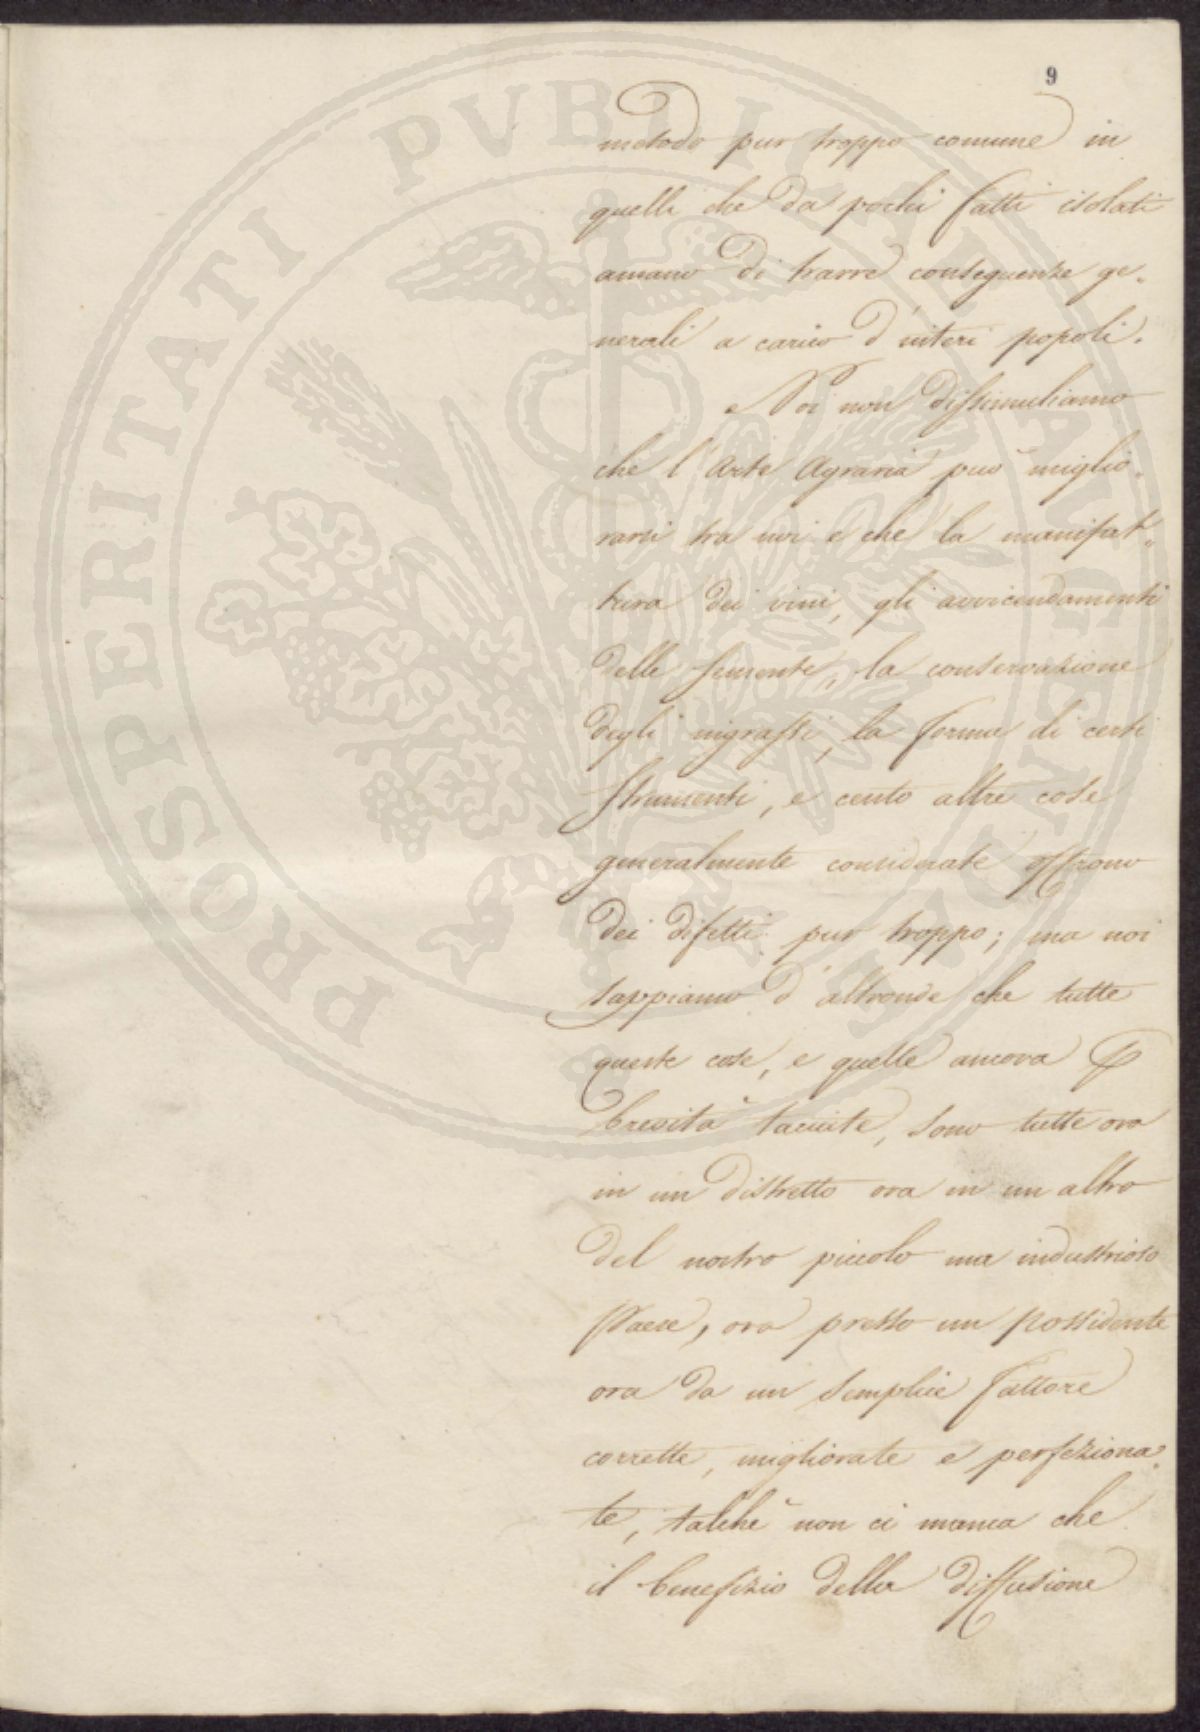 9
metodo pur troppo comune in
quelli che da pochi fatti isolati
amano di trarre conseguenze ge„
nerali a carico d'interi popoli.
Noi non dissimuliamo
che l'Arte Agraria può miglio„
rarsi tra noi e che la manifat„
tura dei vini, gli avvicendamenti
delle semente, la conservazione
degli ingrassi, la forma di certi
strumenti, e cento altre cose
generalmente considerate offrono
dei difetti pur troppo; ma noi
sappiamo d'altronde che tutte
queste cose, e quelle ancora
brevità taciute, sono tutte ora
in un distretto ora in un altro
del nostro piccolo ma industrioso
Paese, ora presso un possidente
ora da un semplice fattore
corrette, migliorate e perfeziona„
te, talchè non ci manca che
il benefizio della diffusione
PROSPERITATI PVBLICAE AVGENDAE